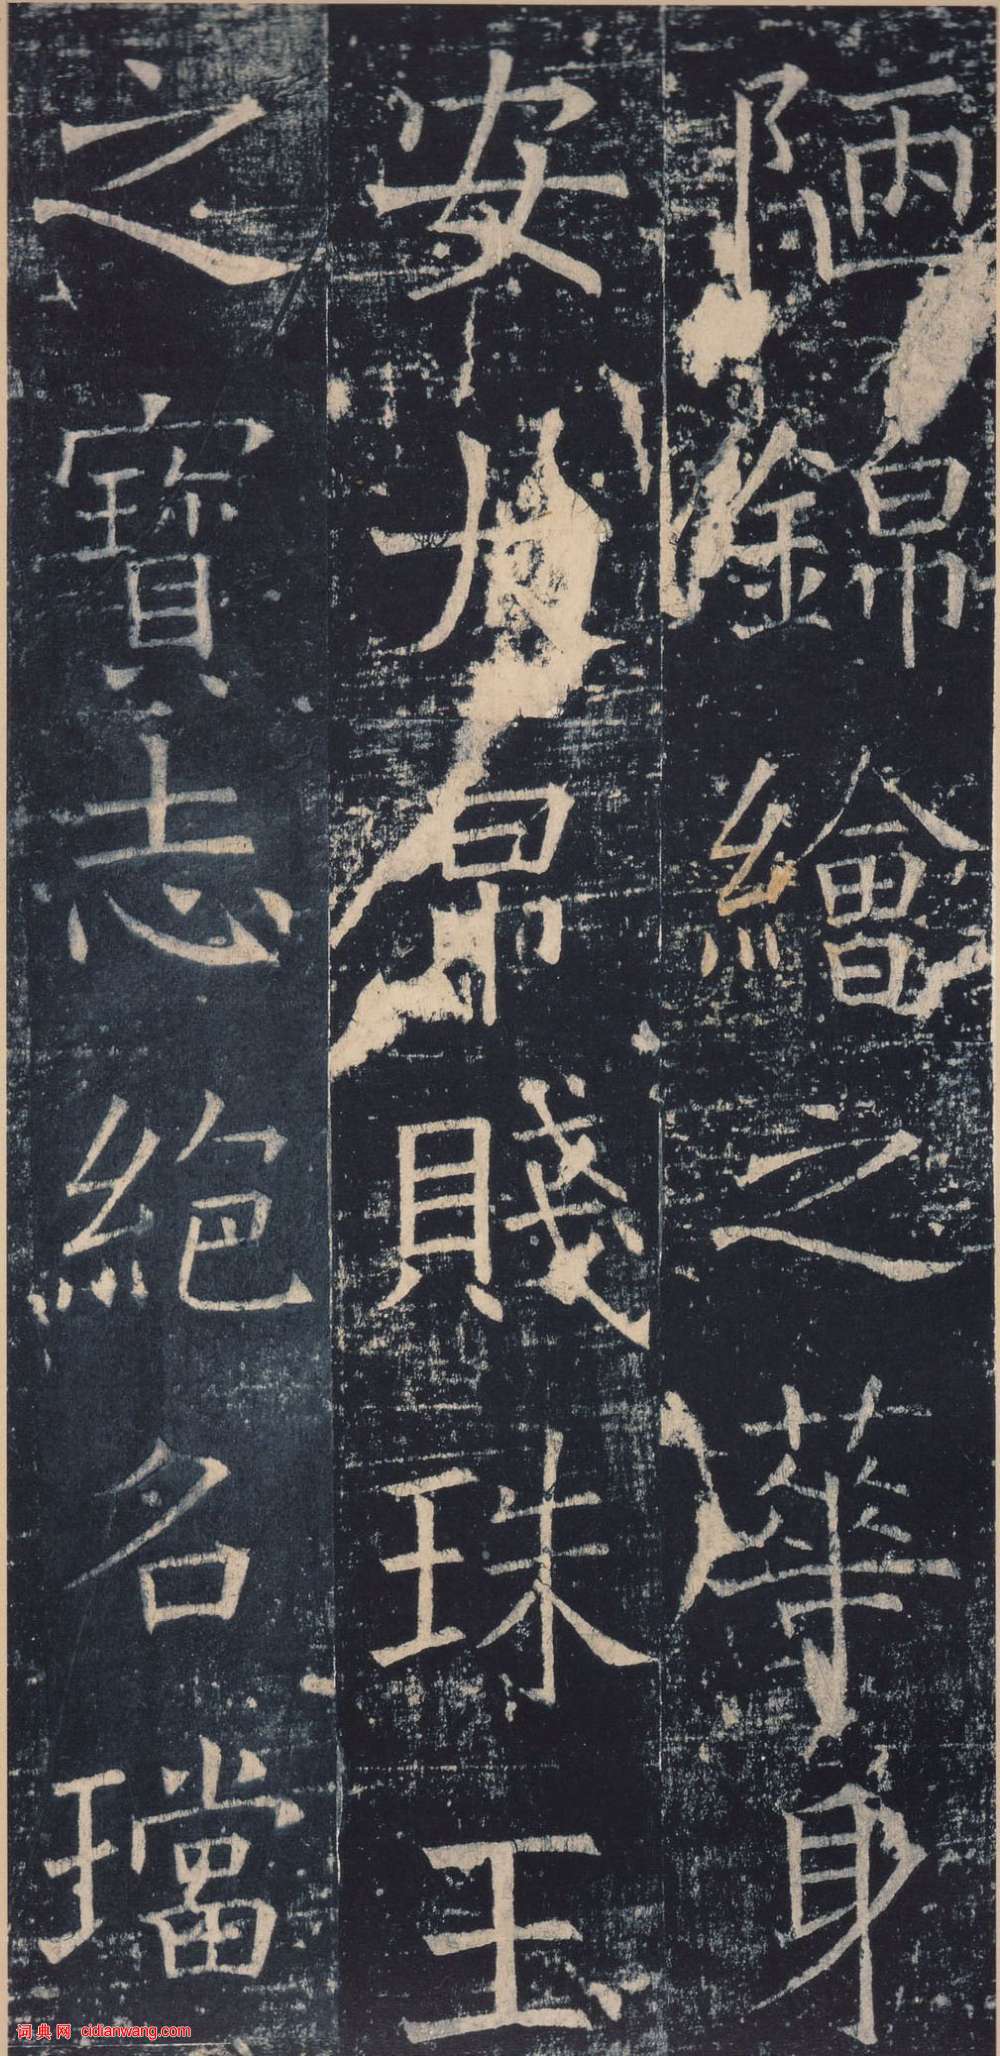 陋錦繪之華身
安大帛賤珠玉
之寶志絕名璫
词典网 cidianwang.com